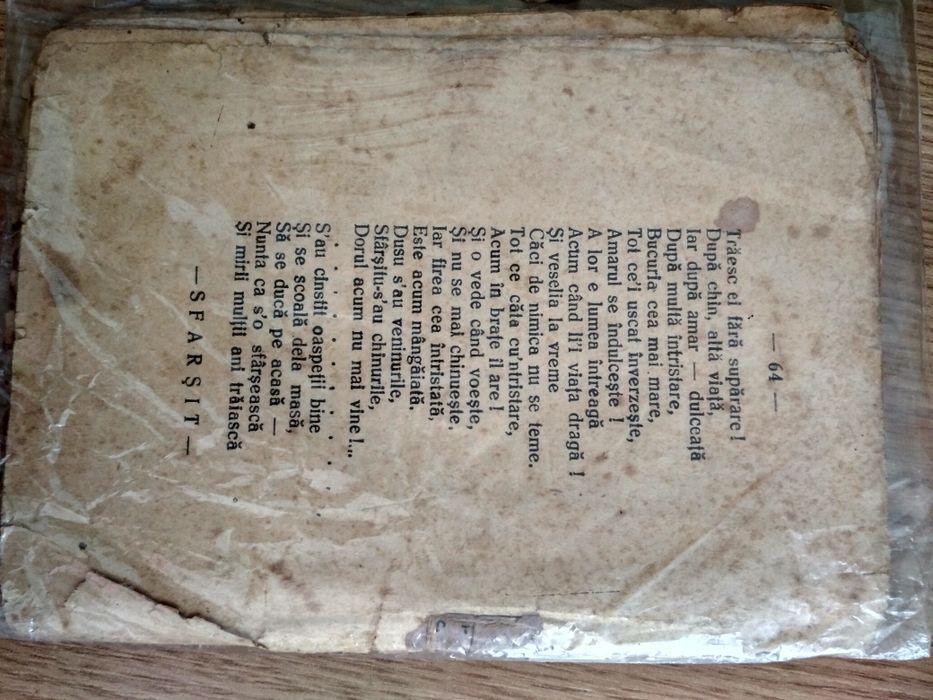 — 64 —
Trăesc ei fără supărare!
După chin, altă viață,
Iar după amar — dulceață
După multă întristare,
Bucuria cea mai mare,
Tot ce'i uscat înverzește,
Amarul se îndulcește!
A lor e lumea întreagă
Acum când li'i viața dragă!
Și veselia la vreme
Căci de nimica nu se teme.
Tot ce căta cu'ntristare,
Acum în brațe îl are!
Și o vede când voește,
Și nu se mai chinuește.
Iar firea cea întristată,
Este acum mângăiată.
Dusu s'au veninurile,
Sfârșitu-s'au chinurile,
Dorul acum nu mai vine!...
. . . . . . . . .
S'au cinstit oaspeții bine
Și se scoală dela masă,
Să se ducă pe acasă —
Nunta ca s'o sfârșească
Și mirii mulții ani trăiască
— SFARȘIT —